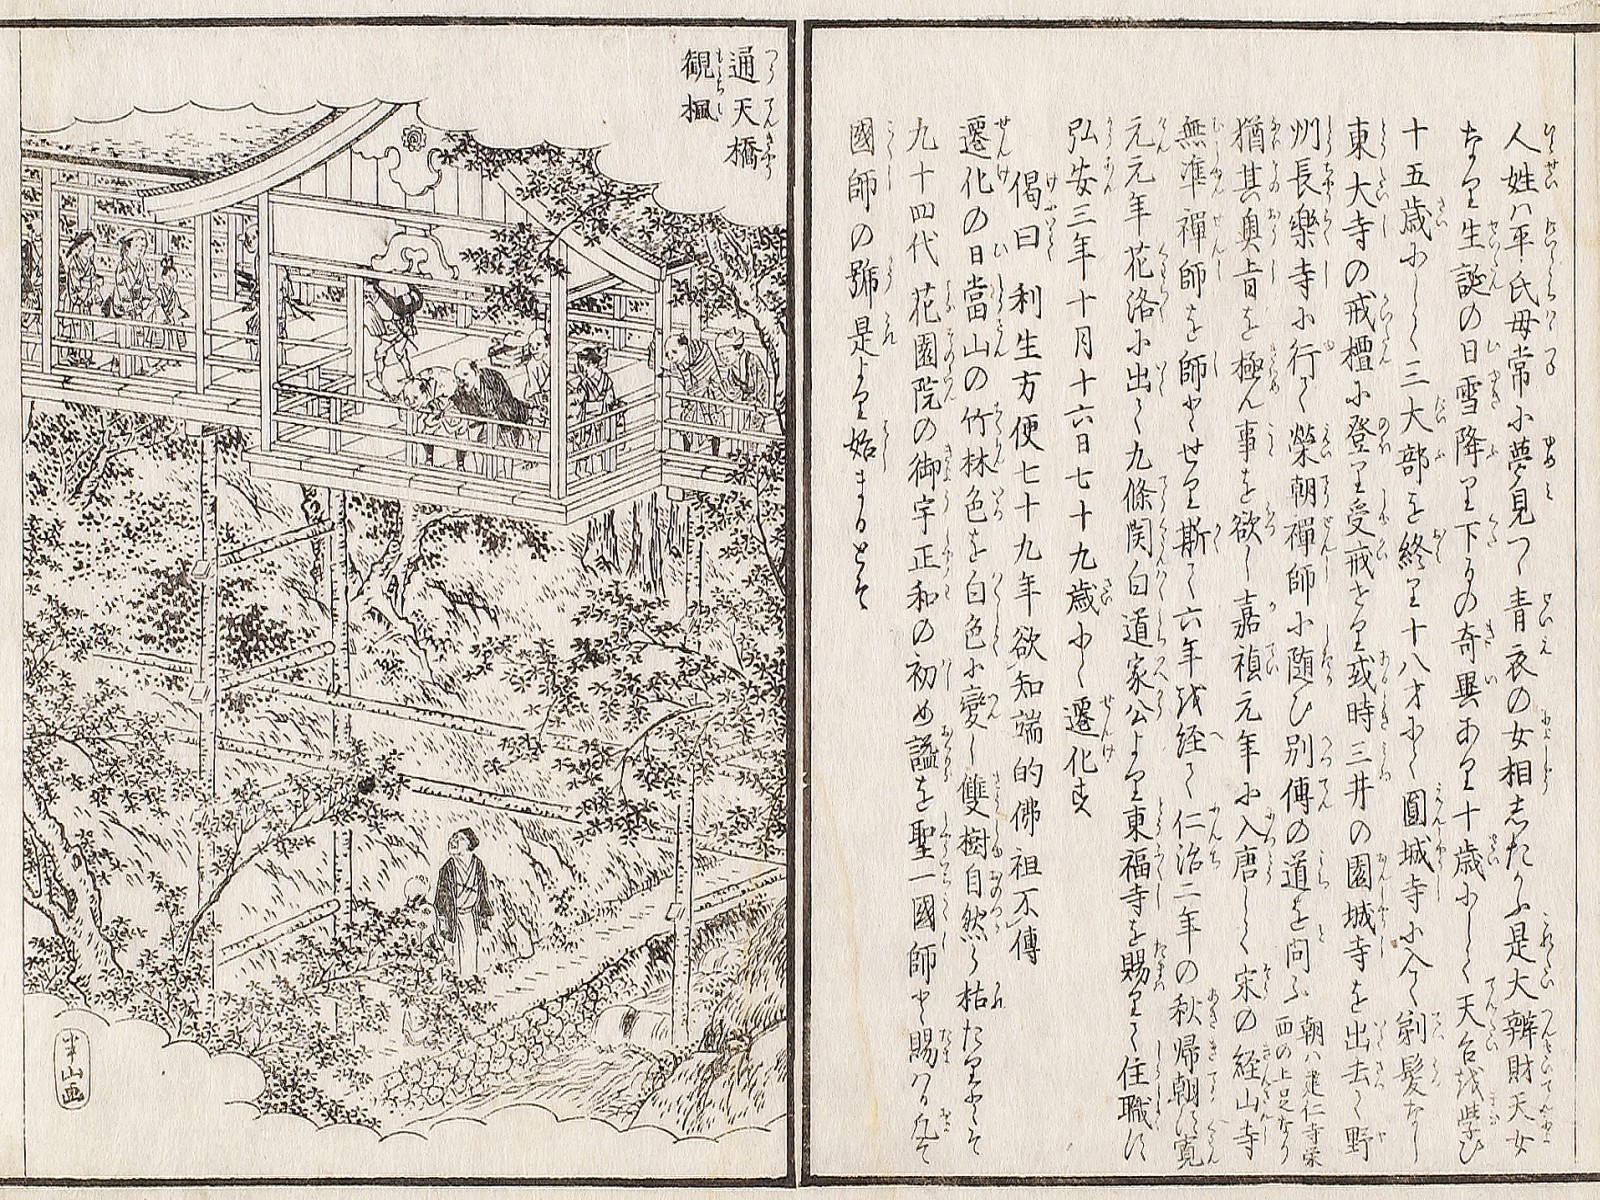 人姓ハ平氏母常に夢見つく青衣の女相したがふ是大辨財天女
なり生誕の日雪降り下るの奇異あり十歳にして天台を学び
十五歳にして三大部を終り十八才にして園城寺に入て剃髪なし
東大寺の戒檀に登り受戒せり或時三井の園城寺を出去て野
州長樂寺に行て榮朝禪師に随ひ別傳の道を問ふ 朝ハ建仁寺栄西の上足なり
猶其奥旨を極ん事を欲し嘉禎元年に入唐して宋の経山寺
無準禪師を師とせり斯て六年を経て仁治二年の秋帰朝に寛
元元年花洛に出て九條関白道家公より東福寺を賜りて住職に
弘安三年十月十六日七十九歳にして遷化す
偈曰 利生方便七十九年欲知端的佛祖不傳
遷化の日當山の竹林色を白色に變し雙樹自然に枯たりとぞ
九十四代花園院の御宇正和の初め謚を聖一國師と賜ハる凡て
國師の號是より始まるとぞ
通天橋
観楓
半山画